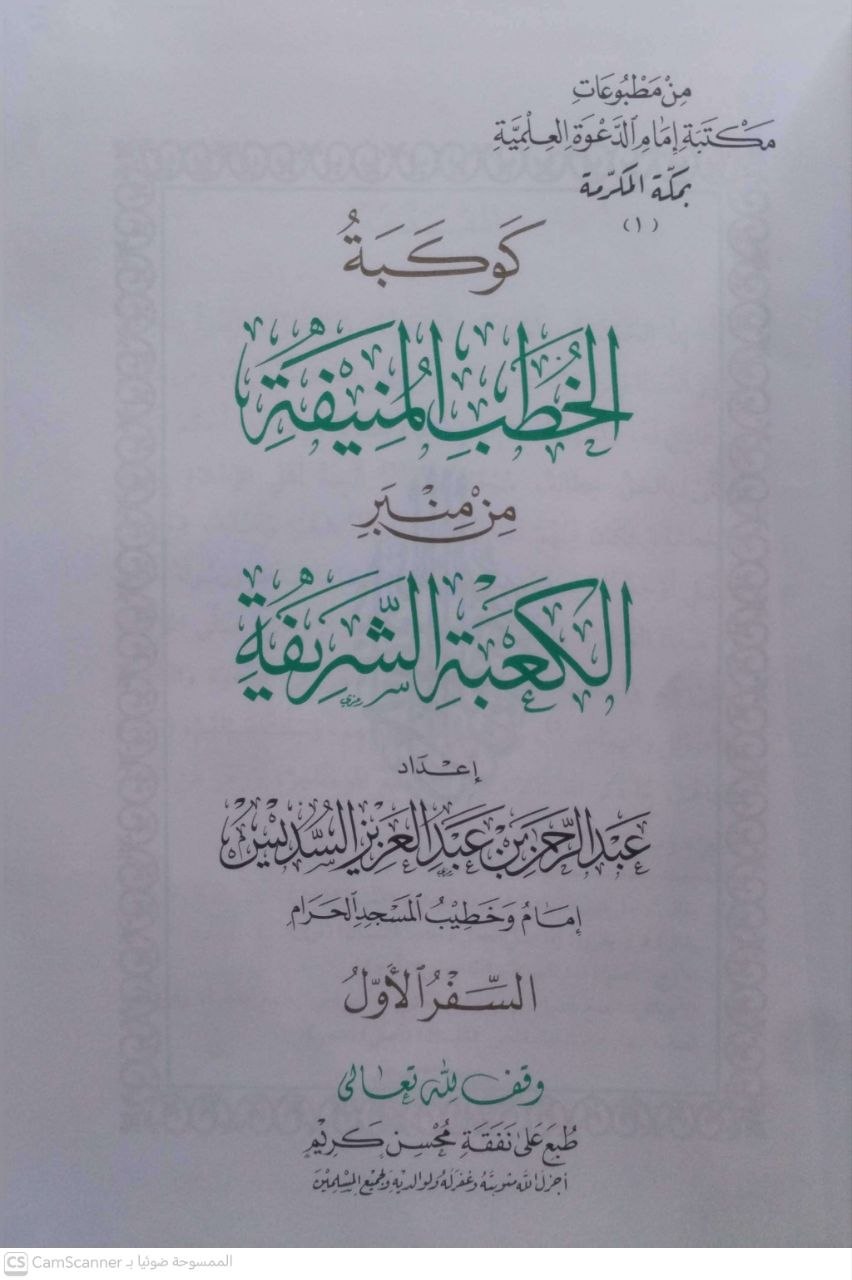 مِنْ مَطْبُوعَاتِ
مَكْتَبَةِ إِمَامِ الدَّعْوَةِ العِلْمِيَّةِ
بمكّة المكرّمة
(١)
كَوكَبَةُ
الخُطَبِ المُنِيْفَةِ
مِنْ مِنْبَرِ
الكَعْبَةِ الشَّرِيفَةِ
إعْدَاد
عَبْدِ الرَّحْمَنِ بْنِ عَبْدِ العَزِيْزِ السُّدَيْسْ
إمَامُ وَخَطِيْبُ المَسْجِدِ الحَرَامِ
السِّفْرُ الأَوَّلُ
وقف لله تعالى
طُبِعَ عَلَى نَفَقَةِ مُحْسِنٍ كَرِيْمٍ
أجزل الله مثوبتَهُ وغفر لَهُ ولوالديه ولجميع المسلمين
CS CamScanner الممسوحة ضوئيا بـ